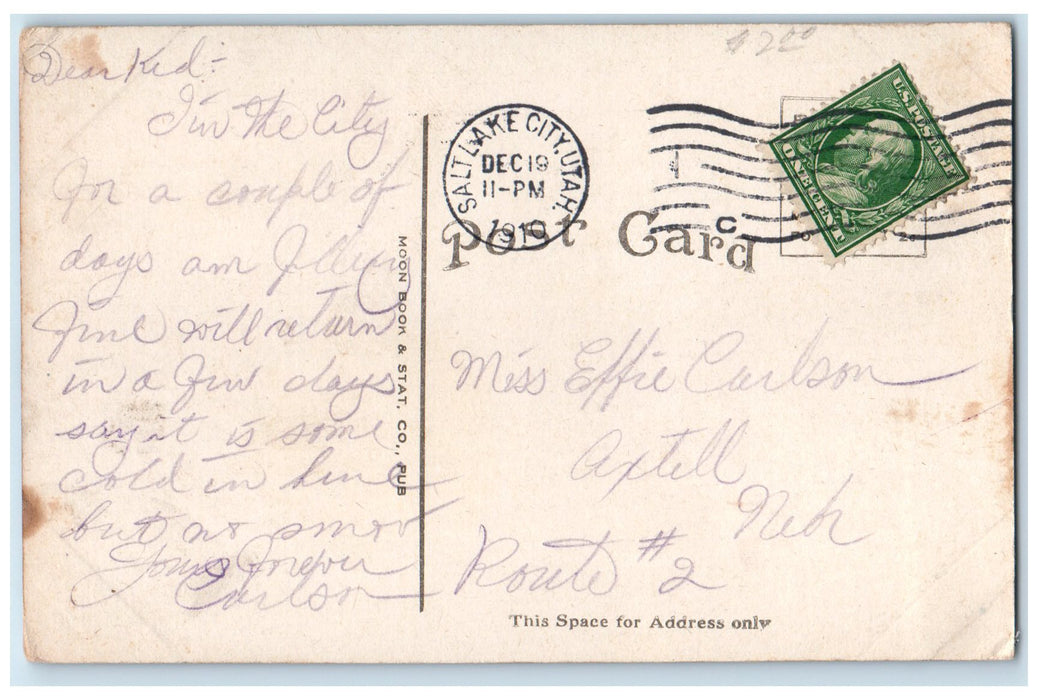 $2.00
Dear Kid:-
I'm the City
for a couple of
days am
fine will return
in a few days
say it is some
cold in here
but no snow
Yours forever
Carlson
MOON BOOK & STAT. CO., PUB
SALT LAKE CITY, UTAH.
DEC 19
11-PM
1910
Post Card
C
U.S. POSTAGE
ONE CENT
Miss Effie Carlson
Axtell
Nebr
Route #2
This Space for Address only